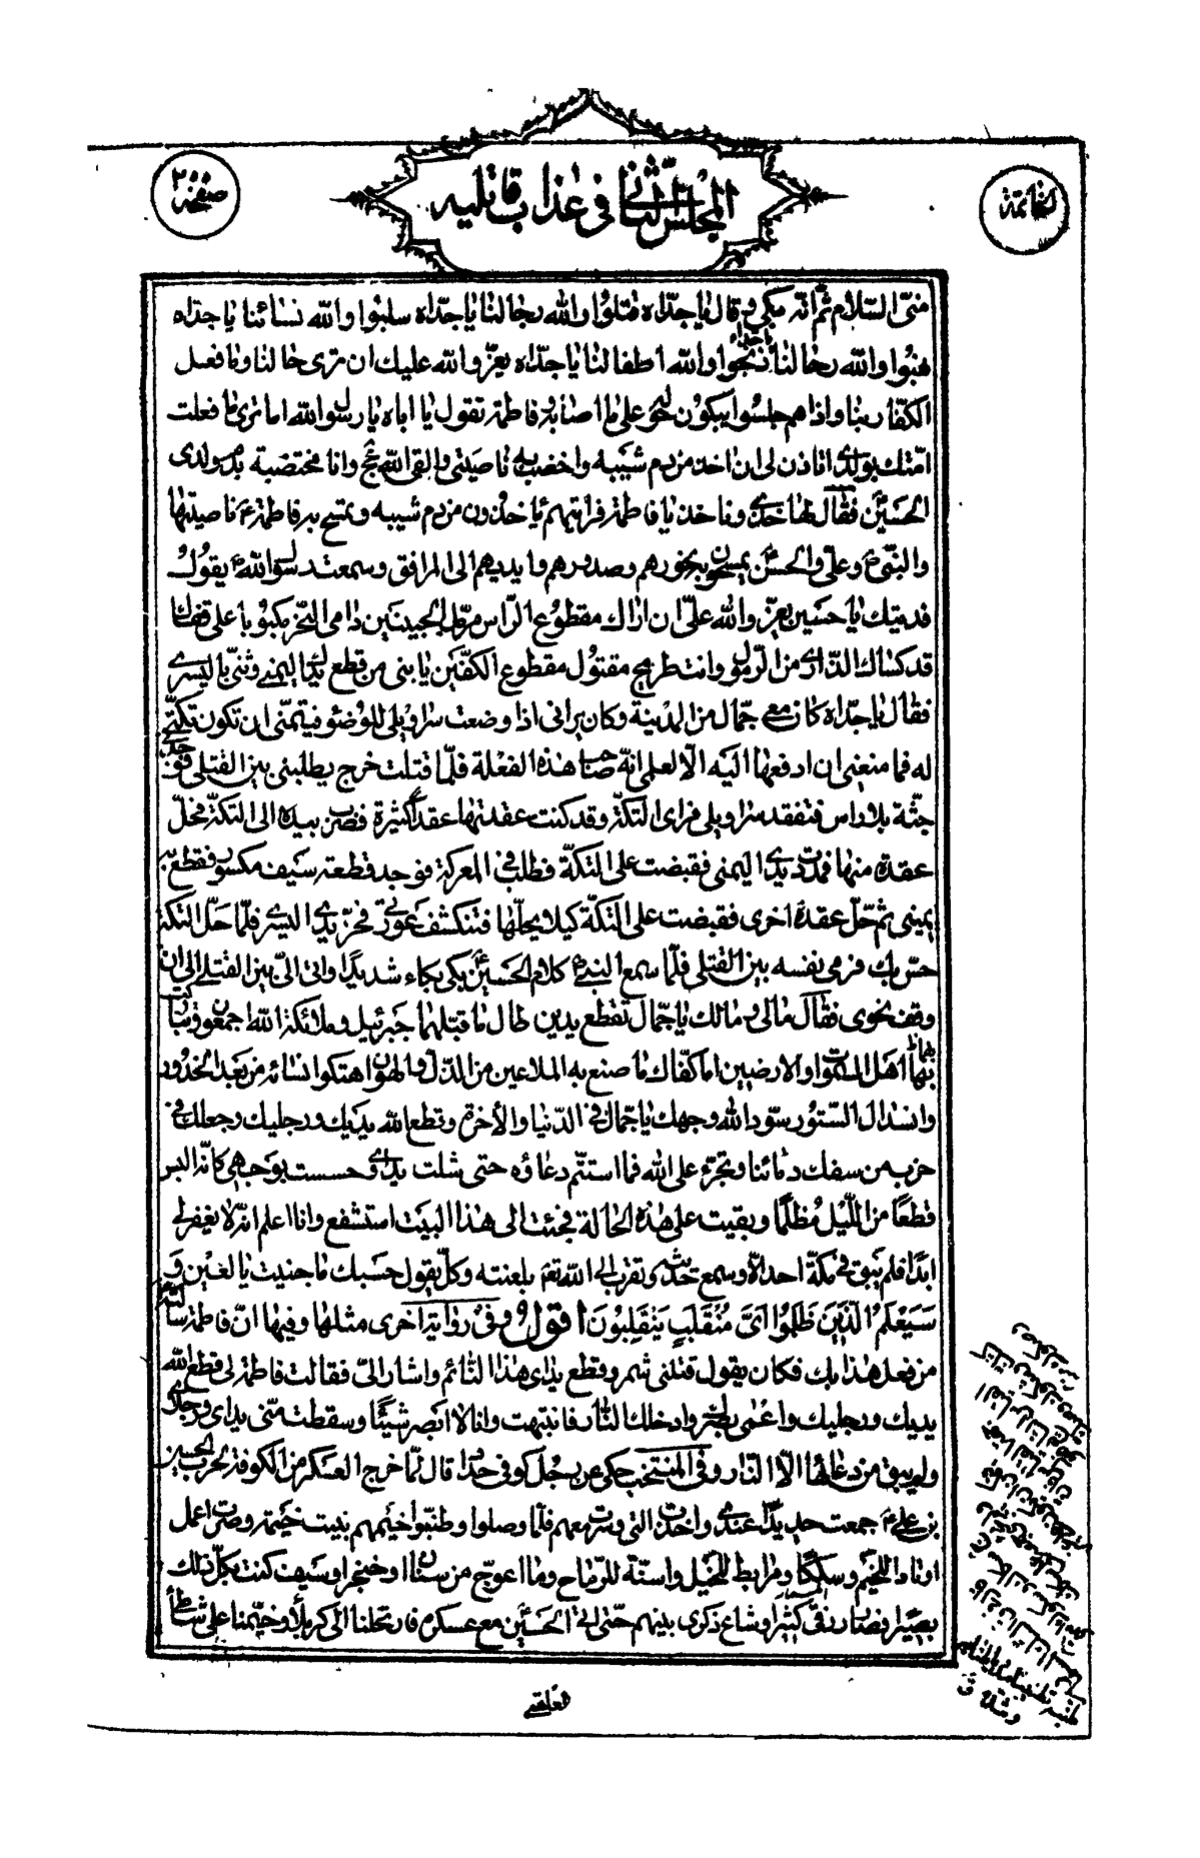 الخاتمة
المجلس الثانی فی عذاب قاتلیه
صفحه ٢٠٠
منّی السّلام ثمّ انّه بکی و قال یا جدّاه قتلوا والله رجالنا یا جدّاه سلبوا والله نسائنا یا جداه
نهبوا والله رحالنا یا جداه ذبحوا والله اطفالنا یا جدّاه یعزّ والله علیك ان تری حالنا وما فعل
الکفّار بنا واذا هم جلسوا یبکون حوله علی ما اصابه وفاطمة تقول یا اباه یا رسول الله اما تری ما فعلت
امّتك بولدی اتاذن لی ان اخذ من دم شیبه واخضب به ناصیتی والقی الله عج وانا مختضبة بدم ولدی
الحسین فقال لها خذی وناخذ یا فاطمة فرایتهم یاخذون من دم شیبه وتمسح به فاطمة ع ناصیتها
والنبّی ع وعلّی والحسن یمسحون به نحورهم وصدورهم وایدیهم الی المرافق وسمعت رسول الله یقول
فدیتك یا حسین یعزّ والله علّی ان اراك مقطوع الرّاس مرمّل الجبینین دامی النّحر مکبوبا علی قفاك
قد کساك الذّاری من الرّمول وانت طریح مقتول مقطوع الکفّین یا بنی من قطع یدك الیمنی وثنّی بالیسری
فقال یا جدّاه کان معی جمّال من المدینة وکان یرانی اذا وضعت سراویلی للوضوء فیتمنّی ان تکون تکّتی
له فما منعنی ان ادفعها الیه الّا لعلمی انّه صاحب هذه الفعلة فلمّا قتلت خرج یطلبنی بین القتلی فوجدنی
جثّة بلا راس فتفقد سراویلی فرای التکّة وقد کنت عقدتها عقداً کثیرة فضرب بیده الی التکّة فحلّ
عقدة منها فمددت یدی الیمنی فقبضت علی التکّة فطلب فی المعرکة فوجد قطعة سیف مکسور فقطع به
یمینی ثم حلّ عقدة اخری فقبضت علی التکّة کیلا یحلّها فتنکشف عورتی فحزّ یدی الیسری فلمّا حلّ التکة
حسّ بك فرمی نفسه بین القتلی فلّما سمع النبی ع کلام الحسین بکی بکاء شدیدا واتی الیّ بین القتلی الی ان
وقف نحوی فقال مالی ومالك یا جمّال تقطع یدین طال ما قبلهما جبرئیل وملائکة الله اجمعون وتبارکت
بهما اهل السموات والارضین اما کفاك ما صنع به الملاعین من الذّل والهوان هتکوا نسائه من بعد الخدور
وانسدال السّتور سوّد الله وجهك یا جمال فی الدّنیا والأخرة وقطع الله یدیك ورجلیك وجعلك فی
حزب من سفك دمائنا وتجرّء علی الله فما استتم دعاؤه حتی شلت یدای وحسست بوجهی کانّه البس
قطعا من اللّیل مُظلما وبقیت علی هذه الحالة فجئت الی هذا البیت استشفع وانا اعلم انّه لا یغفر لی
ابدًا فلم یبق فی مکّة احد الّا وسمع حدیثه وتقرب الی الله تعم بلعنته وکلّ یقول حسبك ما جنیت یا لعین وَ
سَیَعْلَمُ الَّذینَ ظَلَمُوا اَیَّ مُنْقَلَبٍ یَنْقَلِبُونَ اقول وفی روایة اخری مثلها وفیها انّ فاطمة سألته
من فعل هذا بك فکان یقول قتلنی شمر وقطع یدای هذا النّائم واشار الیّ فقالت فاطمة لی قطع الله
یدیك ورجلیك واعمی بصرك وادخلك النّار فانتبهت وانا لا ابصر شیئا وسقطت منّی یدای ورجلای
ولم یبق من دعائها الّا النّار وفی المنتخب حکی عن رجل کوفی حدّاد قال لمّا خرج العسکر من الکوفة لحرب الحسین
بن علی ع جمعت حدیدًا عندی واخذت التی وسرت معهم فلّما وصلوا وطنّبوا خیمهم بنیت خیمة وصرت اعمل
اوتادا للخیم وسککًا ومرابط للخیل واسنّة للرّماح وما اعوجّ من سنان او خنجر او سیف کنت بکلّ ذلك
بصیرا فصار رزقی کثیرا وشاع ذکری بینهم حتّی اتی الحسین مع عسکره فارتحلنا الی کربلا وخیّمنا علی شاطئ
العلقمی